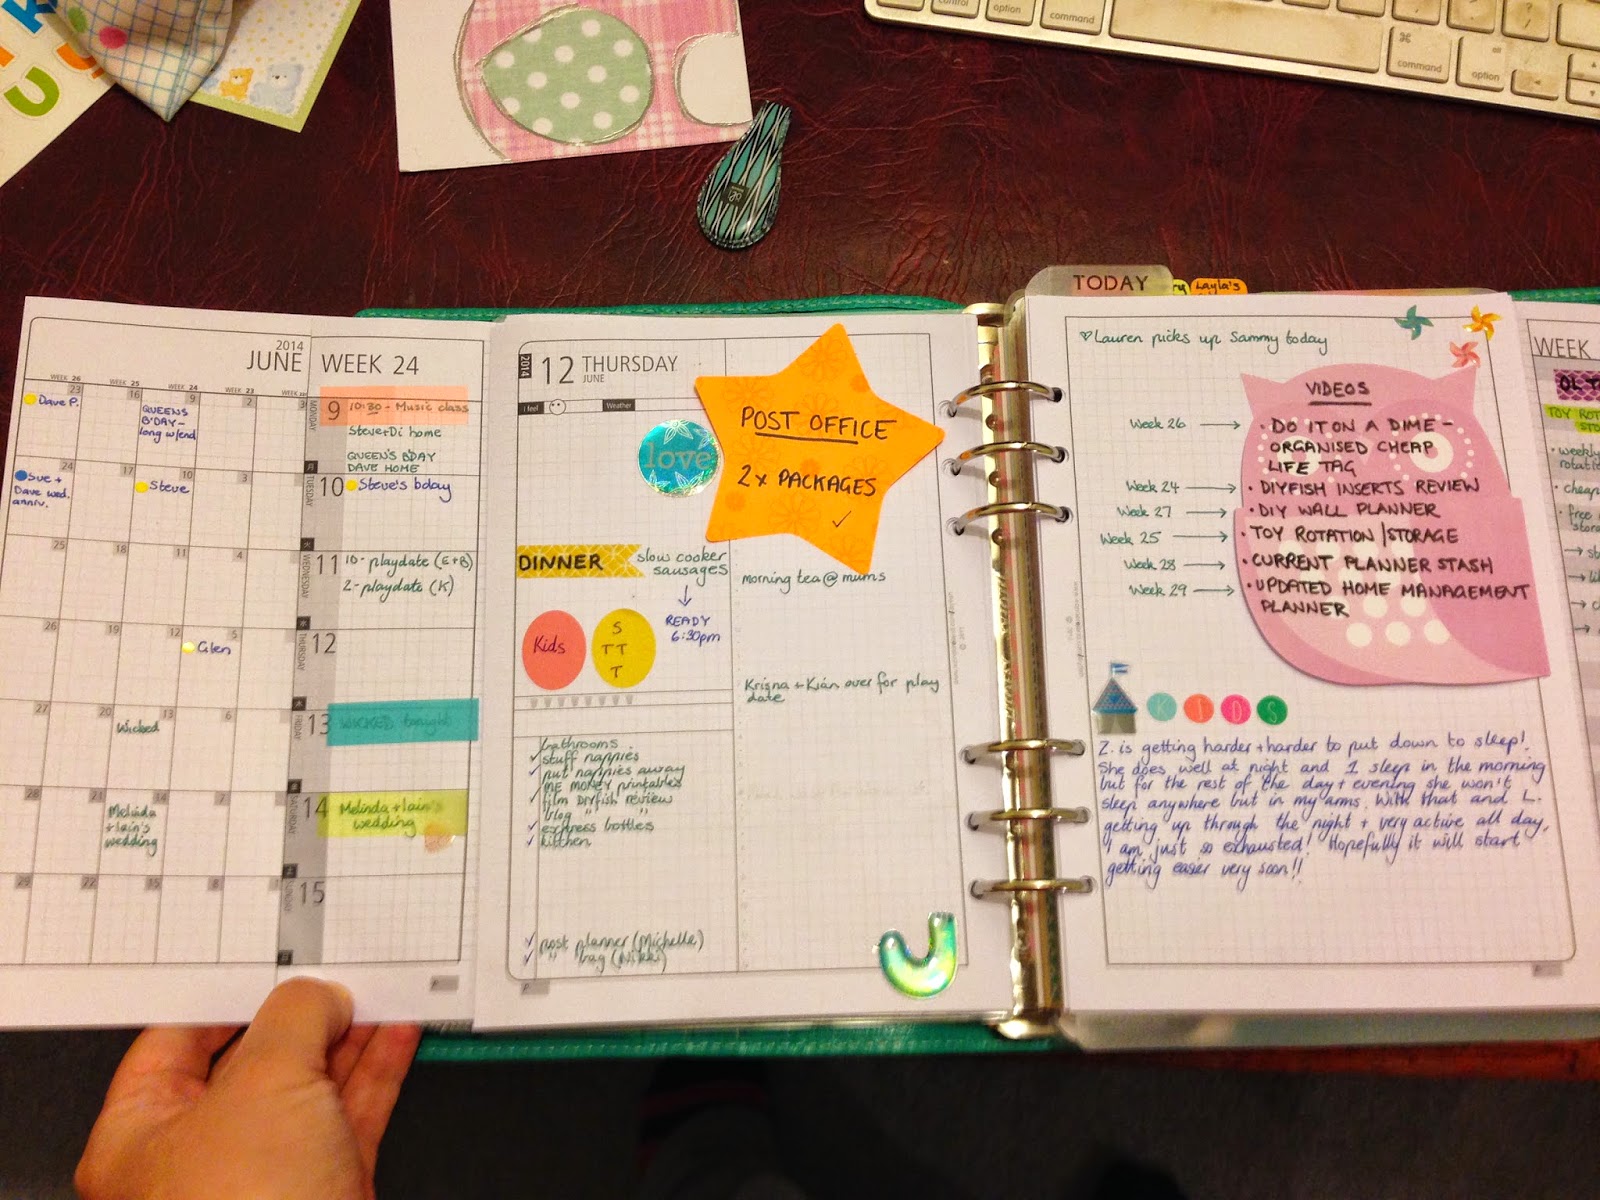 control
option
command
command
option
alt
TODAY
Layla's
2014
JUNE
WEEK 26
WEEK 25
WEEK 24
WEEK 23
23
16
9
2
Dave P.
QUEENS
B'DAY -
long w/end
24
17
10
3
Sue +
Dave wed.
anniv.
Steve
25
18
11
4
26
19
12
5
Glen
27
20
13
6
Wicked
28
21
14
7
Melinda
+ Iain's
wedding
29
22
15
8
1
WEEK 24
MONDAY
9
10:30 - Music class
Steve+Di home
QUEEN'S B'DAY
DAVE HOME
TUESDAY
10
Steve's bday
WEDNESDAY
11
10 - playdate (E+B)
2 - playdate (K)
THURSDAY
12
FRIDAY
13
WICKED tonight
SATURDAY
14
Melinda + Iain's
wedding
SUNDAY
15
P.
2014
12 THURSDAY
JUNE
I feel
Weather
love
POST OFFICE
2 x PACKAGES
✓
DINNER
slow cooker
sausages
↓
READY
6:30pm
Kids
S
TT
T
✓ bathrooms
✓ stuff nappies
✓ put nappies away
ME MONEY printables
✓ film DIYfish review
blog " "
✓ express bottles
✓ kitchen
✓ post planner (Michelle)
✓ " bag (Nikki)
P.
morning tea @ mums
Krisna + Kian over for play
date
♡ Lauren picks up Sammy today
VIDEOS
Week 26 → • DO IT ON A DIME -
ORGANISED CHEAP
LIFE TAG
Week 24 → • DIYFISH INSERTS REVIEW
Week 27 → • DIY WALL PLANNER
Week 25 → • TOY ROTATION/STORAGE
Week 28 → • CURRENT PLANNER STASH
Week 29 → • UPDATED HOME MANAGEMENT
PLANNER
KIDS
Z. is getting harder + harder to put down to sleep!
She does well at night and 1 sleep in the morning
but for the rest of the day + evening she won't
sleep anywhere but in my arms. With that and L.
getting up through the night + very active all day,
I am just so exhausted! Hopefully it will start
getting easier very soon!!
P.
WEEK
TOY ROT
• weekly
• cheap
• free